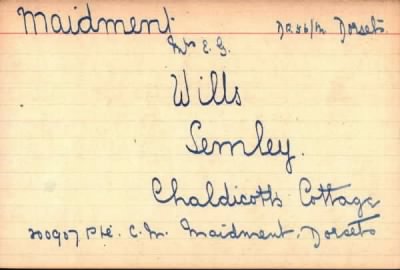 Maidment. Da 56/M Dorsets.
Mrs E. G.
Wills
Semley.
Chaldicotts Cottage
200907 Pte. C. M. Maidment, Dorsets